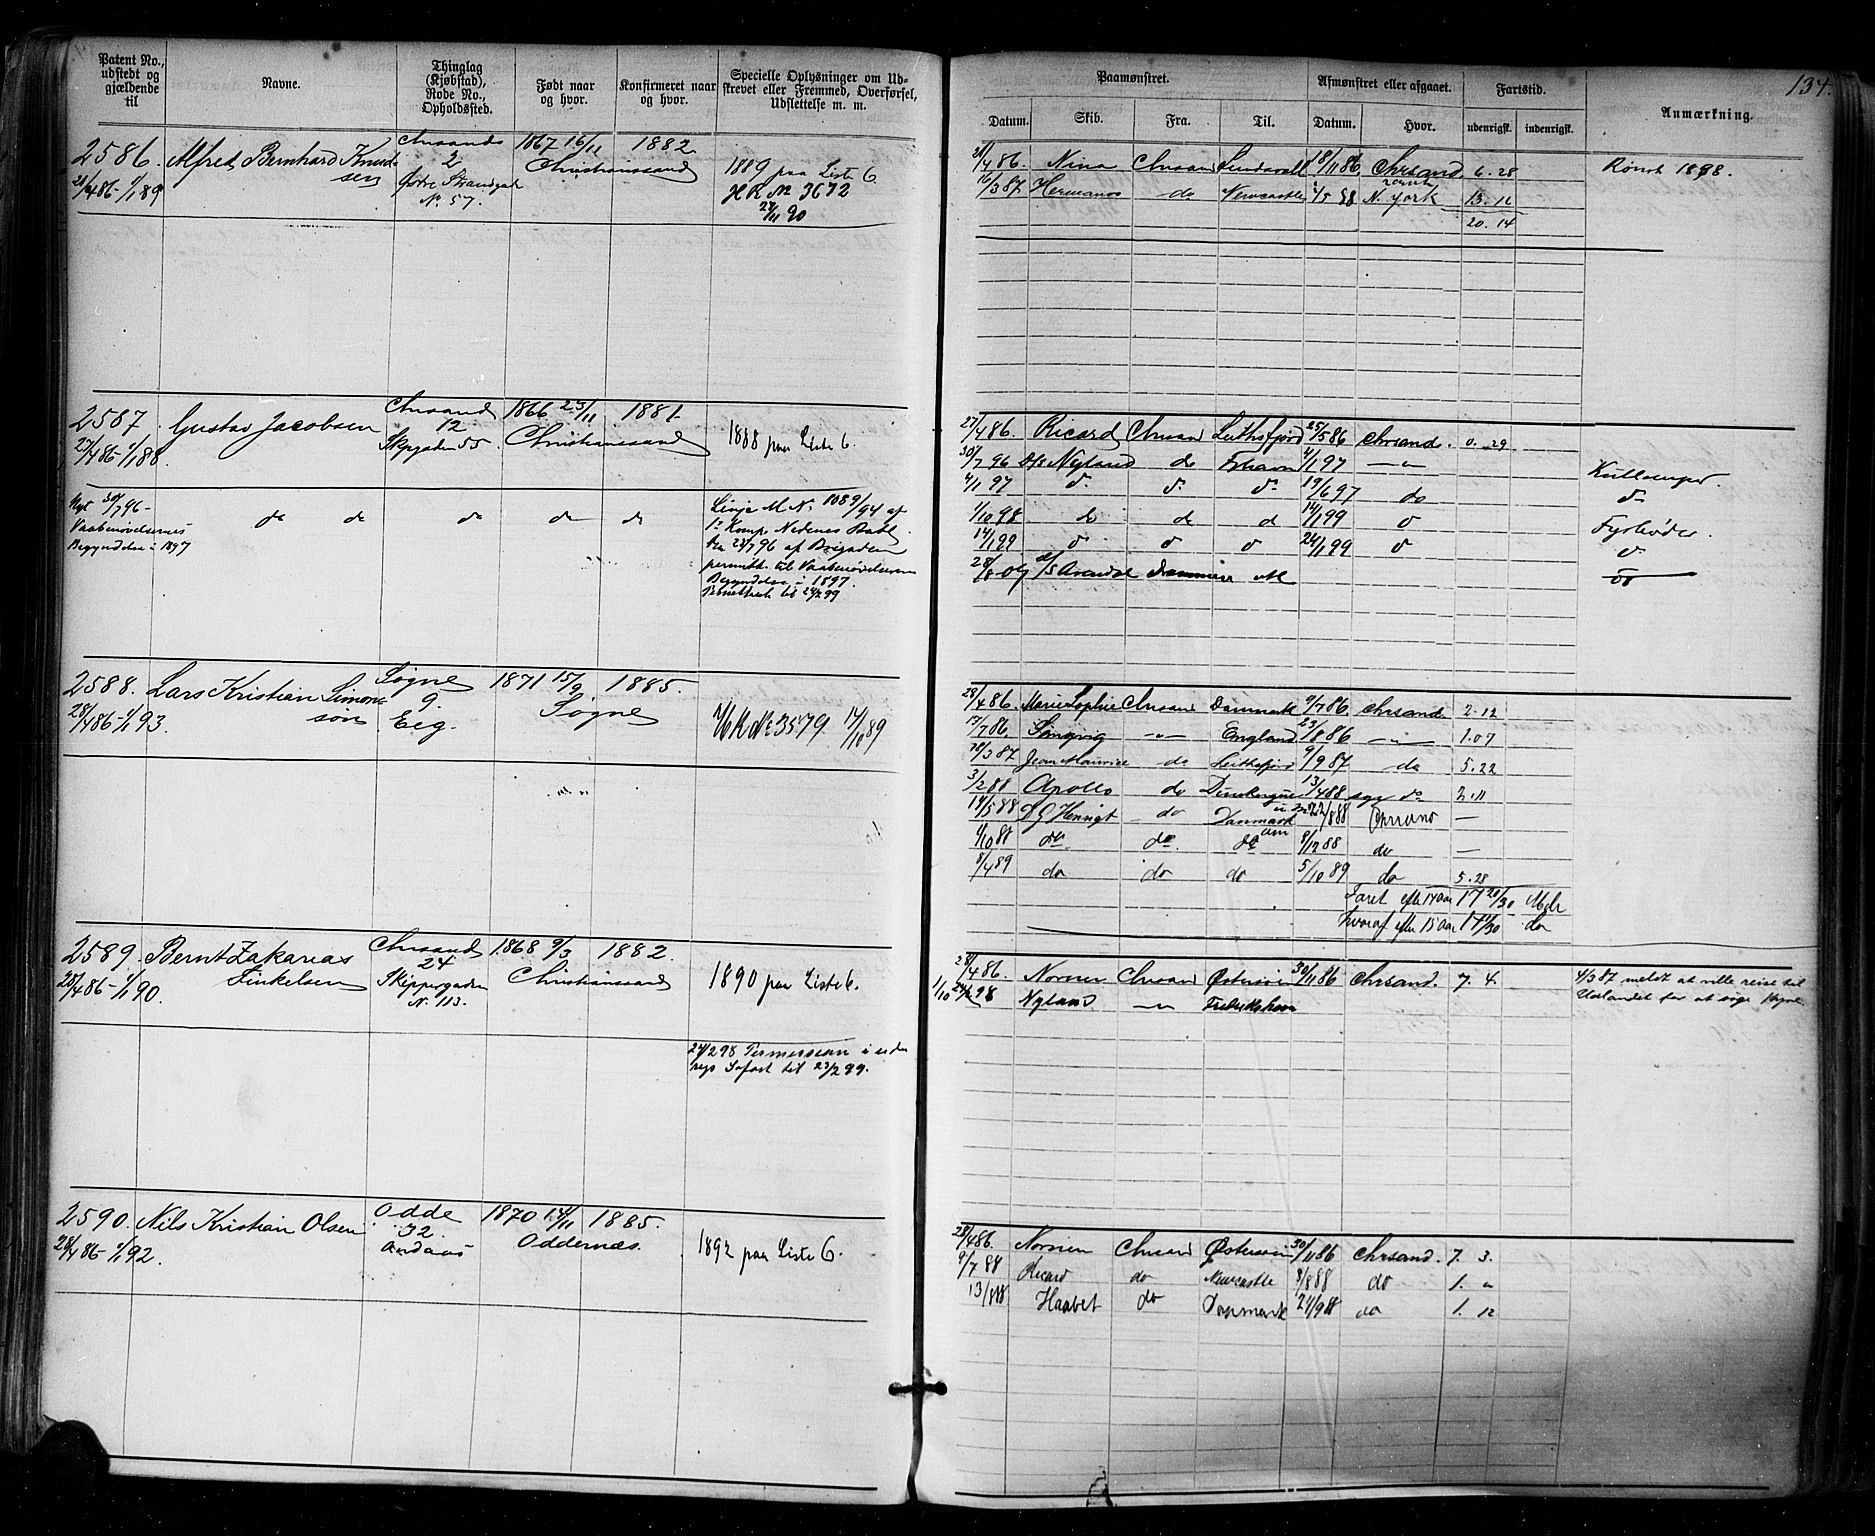 Patent No., udstedt og gjældende til
Navne.
Thinglag (Kjøbstad), Rode No., Opholdssted.
Født naar og hvor.
Konfirmeret naar og hvor.
Specielle Oplysninger om Udskrevet eller Fremmed, Overførsel, Udslettelse m. m.
Paamønstret.
Afmønstret eller afgaaet.
Fartstid.
Anmærkning.
134.
Datum. Skib. Fra. Til. Datum. Hvor. udenrigsk. indenrigsk.
2586. Alfred Bernhard Knudsen
21/4 86 - 1/1 89
Chrsand
2
Østre Strandgade
No. 57.
1867 16/11 1882.
Christianssand
1889 paa Liste 6.
HR No 3672
24/11 90
21/4 86. Nina Chrsand Sundsvall 18/11 86 Chrsand 6. 28 Rømt 1898.
16/3 87 Hermanos do Newcastle 1/5 88 N. York 13. 16
20. 14
2587. Gustav Jacobsen
27/4 86 - 1/1 88.
Chrsand
12
Skipgaden 55.
1866 25/11 1881.
Christianssand
1888 paa Liste 6.
27/4 86. Ricard Chrsand Leithsfjord 25/5 86 Chrsand. 0. 29
30/7 96 D/S Nyland do Fhavn 4/1 97 — " — Kullemper.
4/1 97 do do do 19/6 97 do do
1/10 98 do do d 14/1 99 do Fyrbøder.
14/1 99 do do do 24/1 99 do do
28/8 09 D/S Arendal
Nyt 30/7 96 -
Vaabenøvelsernes
Begyndelse i 1897
do do do do do
Linje M No. 1089/94 af
1ste Komp. Nedenæs Batl.
fra 23/7 96 af Brigaden
permitt. til Vaabenøvelsernes
Begyndelse i 1897.
2588. Lars Kristian Simonsøn
28/4 86 - 1/1 93.
Søgne
9.
Eeg.
1871 15/9. 1885.
Søgne
HR No 3579 17/10 89
28/4 86. Marie Sophie Chrsand Danmark 9/7 86. Chrsand. 2. 12
17/7 86. Songvig — " — England 23/8 86 — " — 1. 07
20/3 87 Jean Maurice do Leithsfjord 9/9 87 do 5. 22
3/2 88 Apollo do Dunkerque 13/4 88 syg do 2. 11
14/5 88 D G Hennigt do Danmark 22/8 88 Chrsand —
1/10 88 do. do. do 9/12 88 do —
8/4 89 do do do 5/10 89 do 5. 28
Faret efter 14 Aar 17 20/30 Mdr
hvoraf efter 15 Aar 14 11/30 do
2589. Bernt Zakarias
Finkelsen
28/4 86 - 1/1 90.
Chrsand
24
Skippergaden
No. 113.
1868 9/3 1882.
Christianssand
1890 paa Liste 6.
28/4 86. Nornen Chrsand Østersøen 30/11 86 Chrsand. 7. 4.
Nyland — " — Fredrikshavn
4/3 87 meldt at ville reise til
Udlandet for at søge Hyre
24/2 98 Permission i uden
rigs Søfart til 23/2 99.
2590. Nils Kristian Olsen
28/4 86 - 1/1 92.
Odde
32.
1870 14/11 1885.
Oddernæs.
1892 paa Liste 6.
28/4 86. Nornen Chrsand Østersøen 30/11 86 Chrsand. 7. 3.
9/7 88 Ricard do Newcastle 8/8 88 do 1. "
13/8 88 Haabet do Danmark 24/9 88 do 1. 12